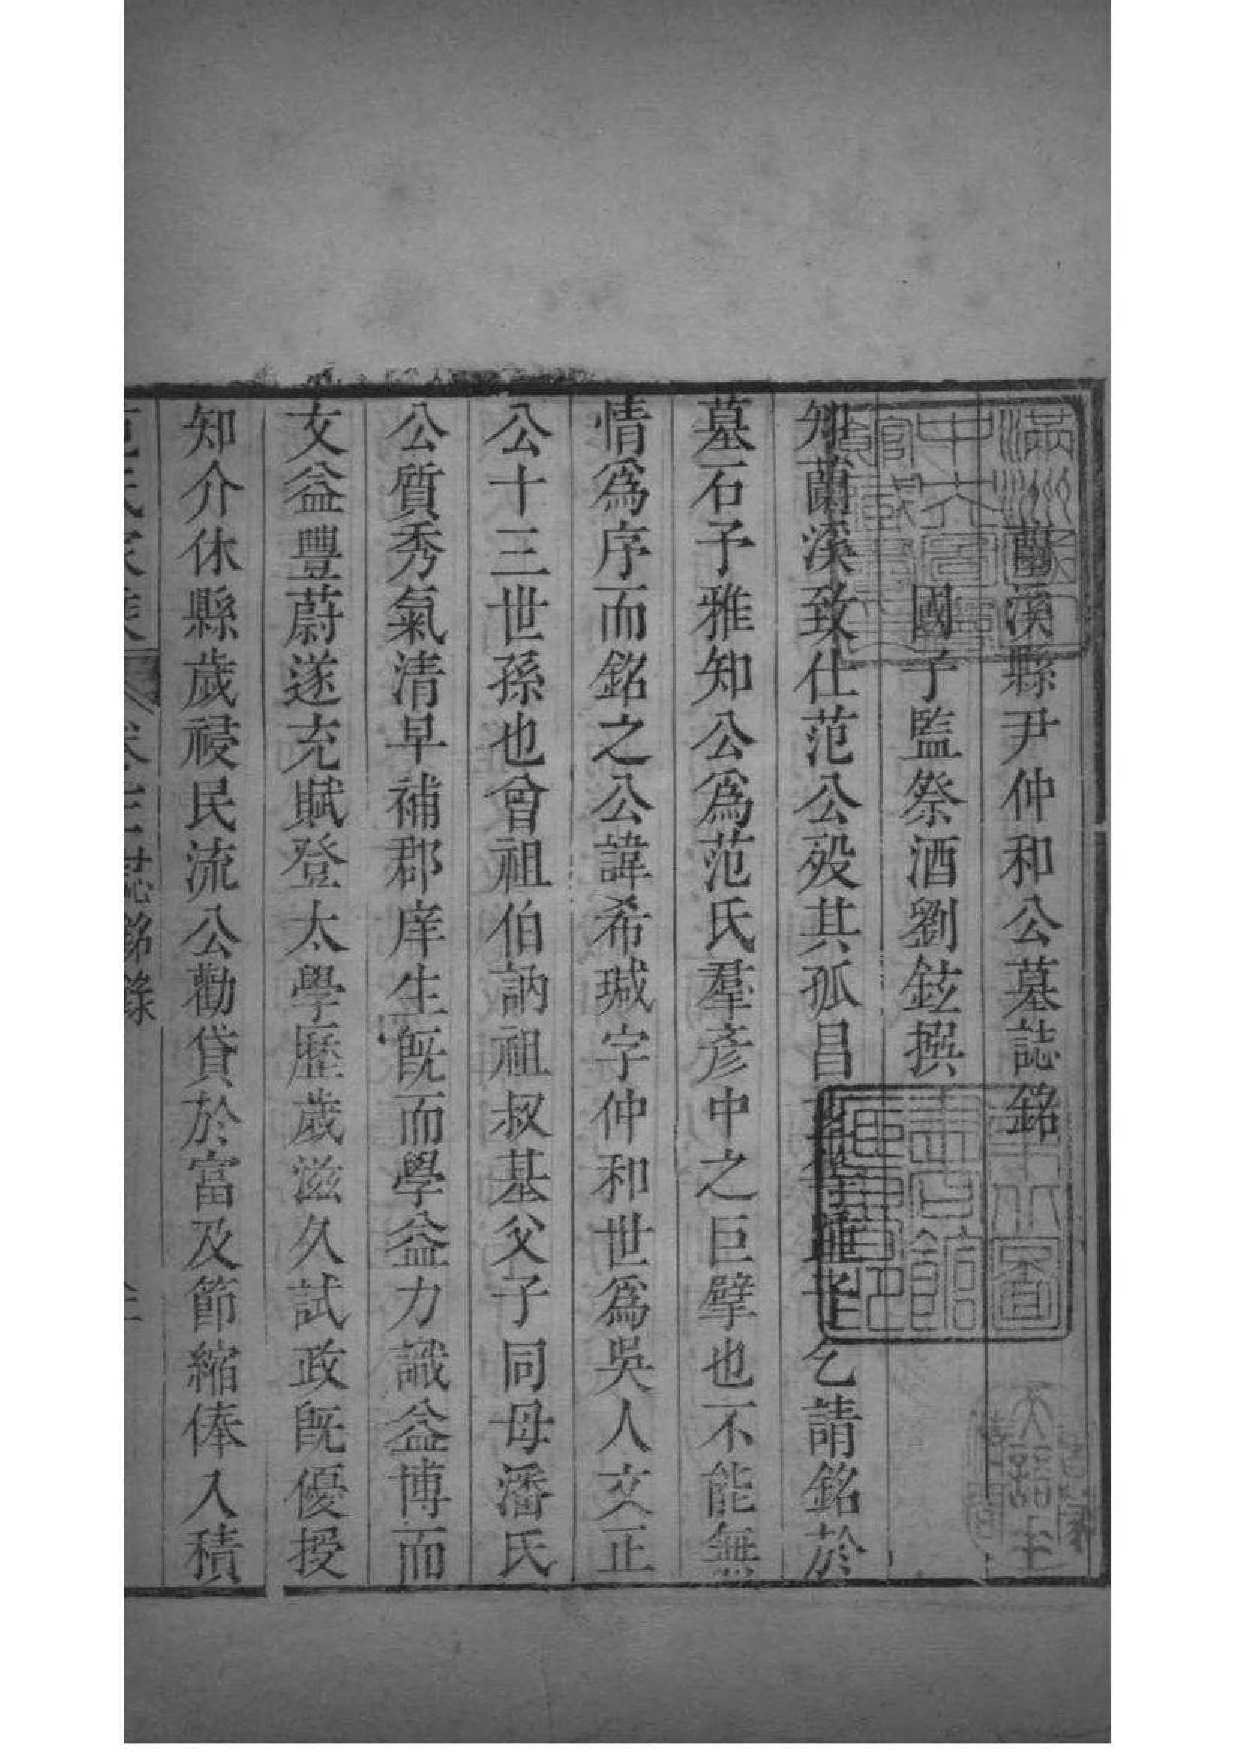 蘭溪縣尹仲和公墓誌銘
國子監祭酒劉鉉撰
知蘭溪致仕范公歿其孤昌乞請銘於
墓石予雅知公爲范氏羣彥中之巨擘也不能無
情爲序而銘之公諱希瑊字仲和世爲吳人文正
公十三世孫也曾祖伯訥祖叔基父子同母潘氏
公質秀氣清早補郡庠生旣而學益力識益博而
文益豐蔚遂充賦登太學歷歲滋久試政旣優授
知介休縣歲祲民流公勸貸於富及節縮俸入積
范氏家乘 卷十三 誌銘錄